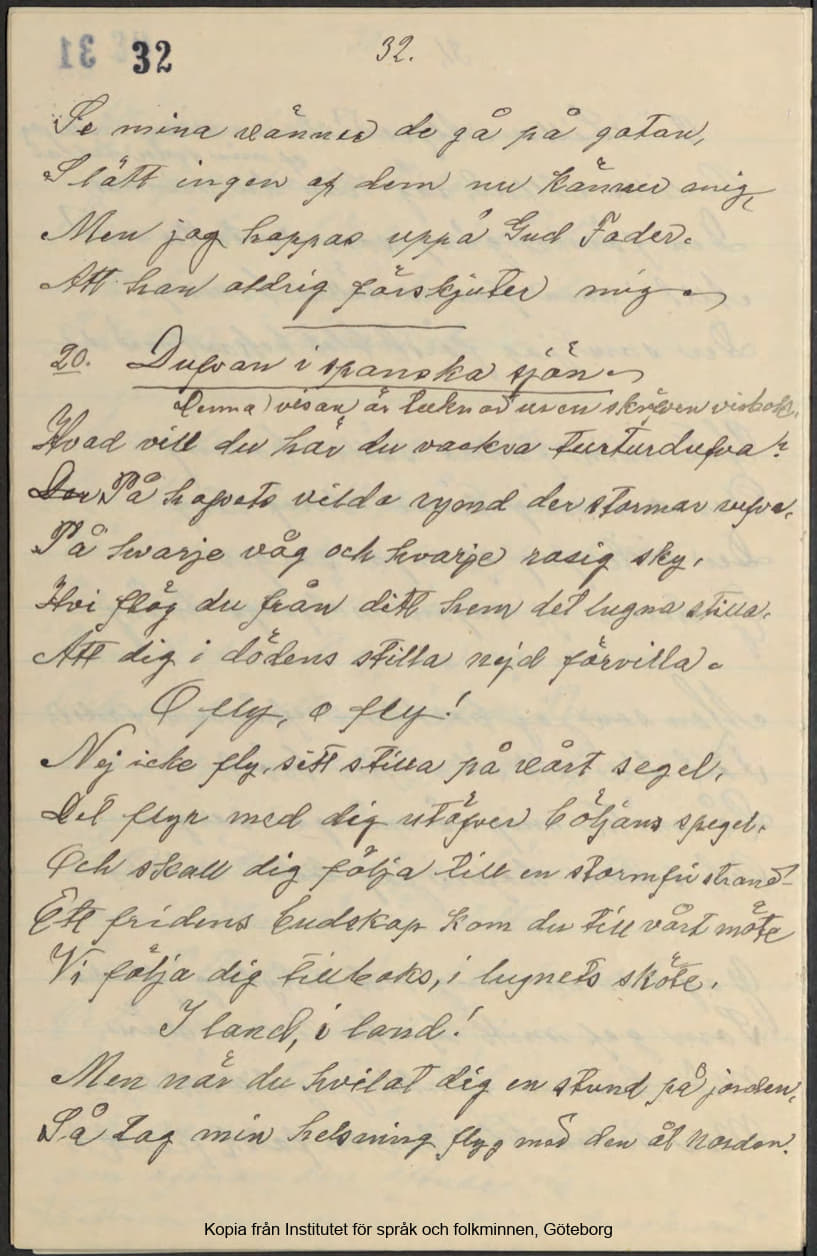 31 32
32.
Se mina vänner de gå på gatan,
Slätt ingen af dem nu känner mig,
Men jag hoppas uppå Gud Fader.
Att han aldrig förskjuter mig.
20. Dufvan i spanska sjön.
Denna visan är tecknad ur en skrifven visbok.
Hvad vill du här du vackra turturdufva?
Der På hafvets vilda rymd der stormar rufva,
På hvarje våg och hvarje rosig sky,
Hvi flög du från ditt hem det lugna stilla,
Att dig i dödens stilla nejd förvilla.
O fly, o fly!
Nej icke fly, sitt stilla på vårt segel,
Det flyr med dig utöfver böljans spegel,
Och skall dig följa till en stormfri strand
Ett fridens budskap kom du till vårt möte
Vi följa dig tillbaks, i lugnets sköte,
I land, i land!
Men när du hvilat dig en stund på jorden,
Så tag min helsning flyg med den åt norden.
Kopia från Institutet för språk och folkminnen, Göteborg